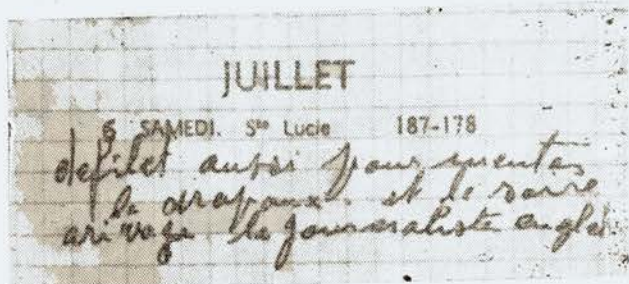 JUILLET
6 SAMEDI. Ste Lucie 187-178
defilet aussi pour mentas
le drapaux. et le soire
arivage le journaliste angles